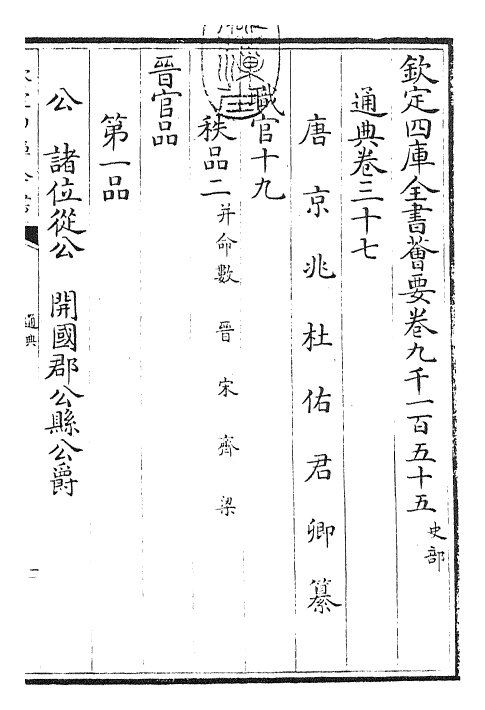 欽定四庫全書薈要卷九千一百五十五 史部
通典卷三十七
唐京兆杜佑君卿纂
職官十九
秩品二 并命數 晉 宋 齊 梁
晉官品
第一品
公 諸位從公 開國郡公縣公爵
通典
一